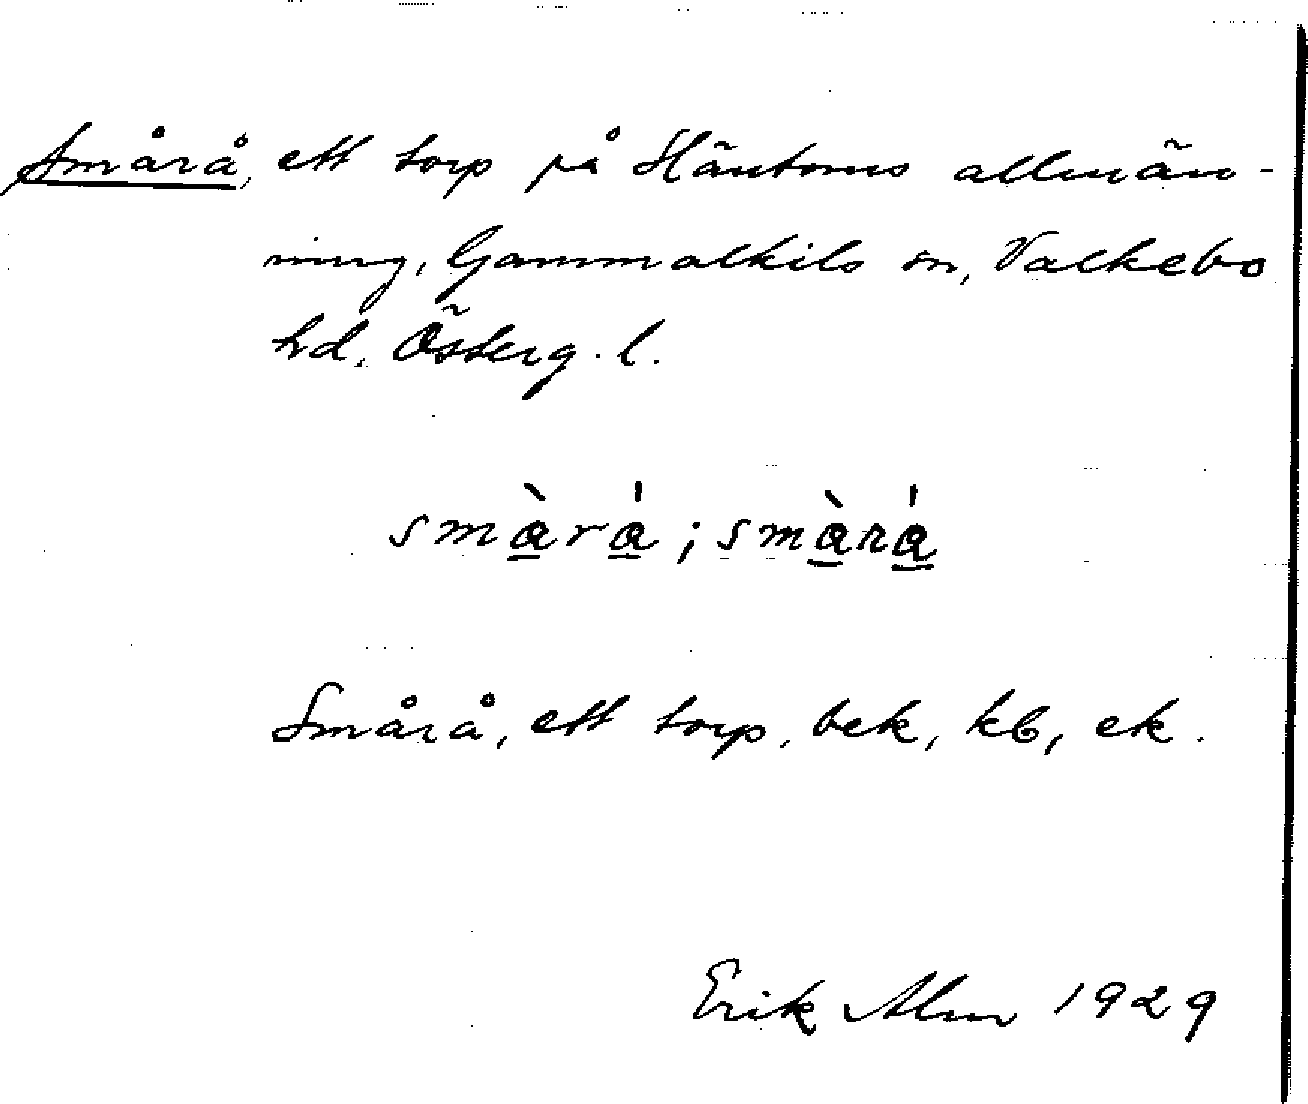 Smårå, ett torp på Häntorns allmän-
ning, Gammalkils sn, Valkebo
hd. Österg. l.
smàrá; smàrá
Smårå, ett torp, bek, kb, ek.
Erik Alm 1929